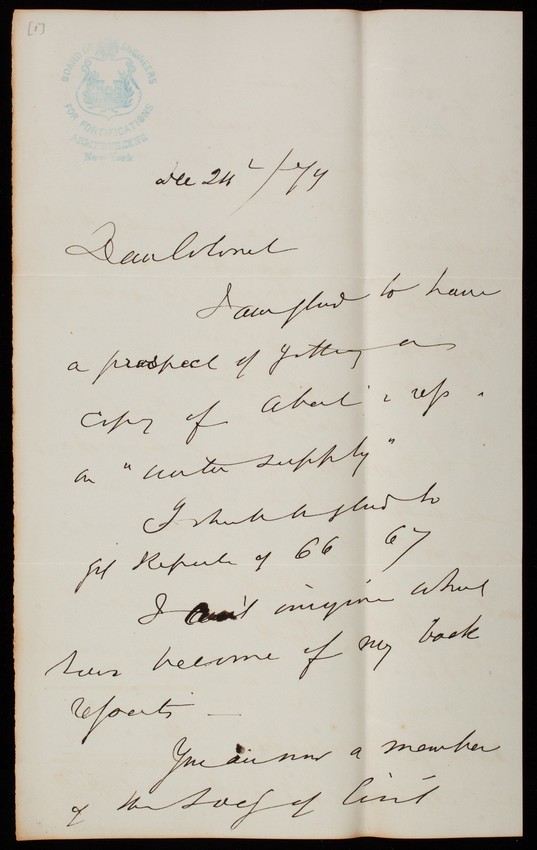 [1]
BOARD OF ENGINEERS
FOR FORTIFICATIONS
New York
Dec 24 /79
Dear Colonel
I am glad to have
a prospect of getting a
copy of Abert's rep.
on "water supply"
I shall be glad to
get Reports of 66 67
I can't imagine what
has become of my back
reports —
You are now a member
of the Socy of Civil